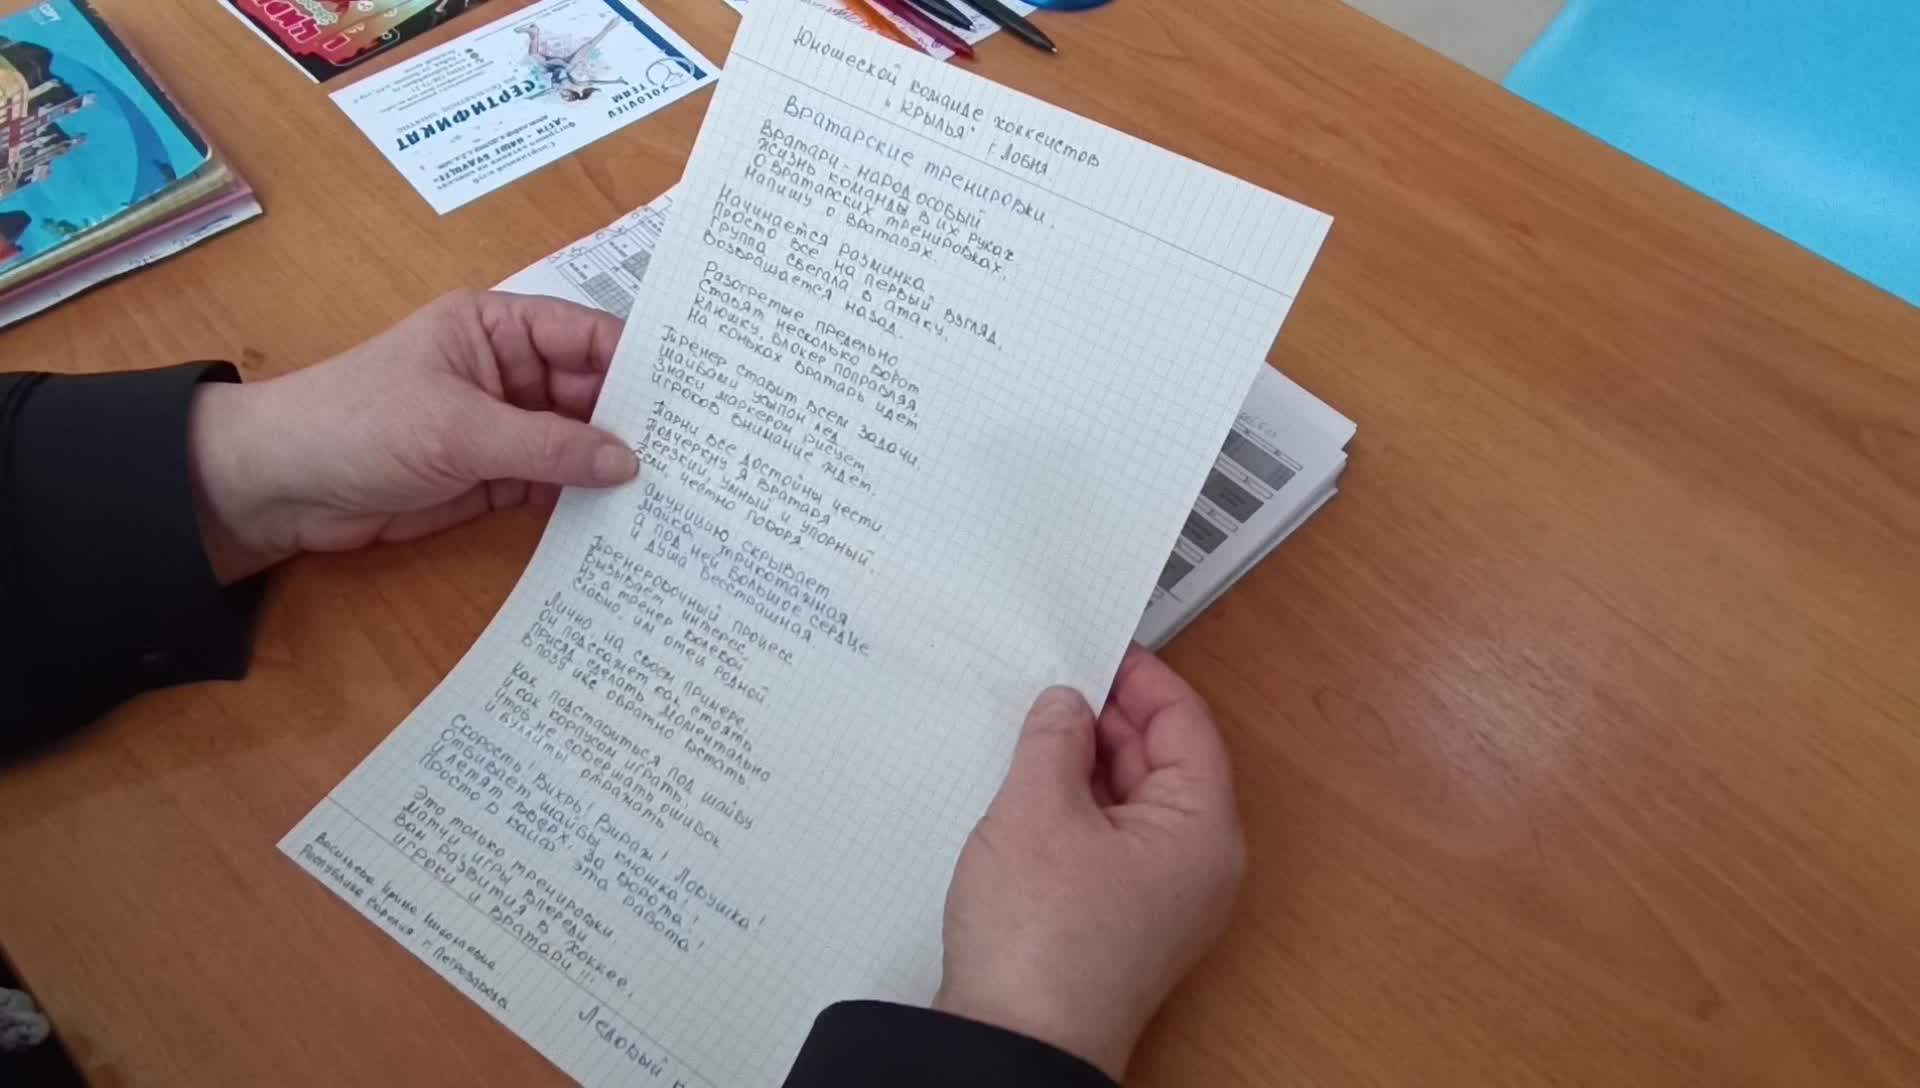 Юношеской команде хоккеистов
"Крылья" г. Лобня
Вратарские тренировки.
Вратари - народ особый
Жизнь команды в их руках
О вратарских тренировках,
Напишу о вратарях.
Начинается разминка
Просто все на первый взгляд,
Группа сбегала в атаку,
Возвращается назад.
Разогретые предельно
Ставят несколько ворот
Клюшку, блокер поправляя,
На коньках вратарь идет
Тренер ставит всем задачи,
Шайбами усыпон лед
Знаки маркером рисует,
Игроков внимание ждет.
Парни все достойны чести
Подчеркну я вратаря
Дерзкий, умный и упорный,
Если честно говоря.
Амуницию скрывает
Майка трикотажная
А под ней большое сердце
И душа бесстрашная
Тренеровочный процесс
Вызывает интерес
Ну, а тренер волевой
Словно им отец родной.
Лично, на своем примере,
Он подскажет как стоять
Присяд сделать моментально
В позу их обратно встать.
Как подставиться под шайбу
И как корпусом играть,
Чтоб не совершать ошибок
И буллиты отражать
Скорость! Вихрь! Вираж! Ловушка!
Отбивает шайбы клюшка!
И летят вверх, за ворота!
Просто в кайф эта работа!
Это только тренировки.
Матчи, игры впереди
Вам развития в хоккее,
Игроки и вратари!!!
Васильева Ирина Николаевна
Республика Карелия г. Петрозаводск
Ледовый
СЕРТИФИКАТ
«ДЕТИ - НАШЕ БУДУЩЕЕ»
SOLOVIEV
TEAM